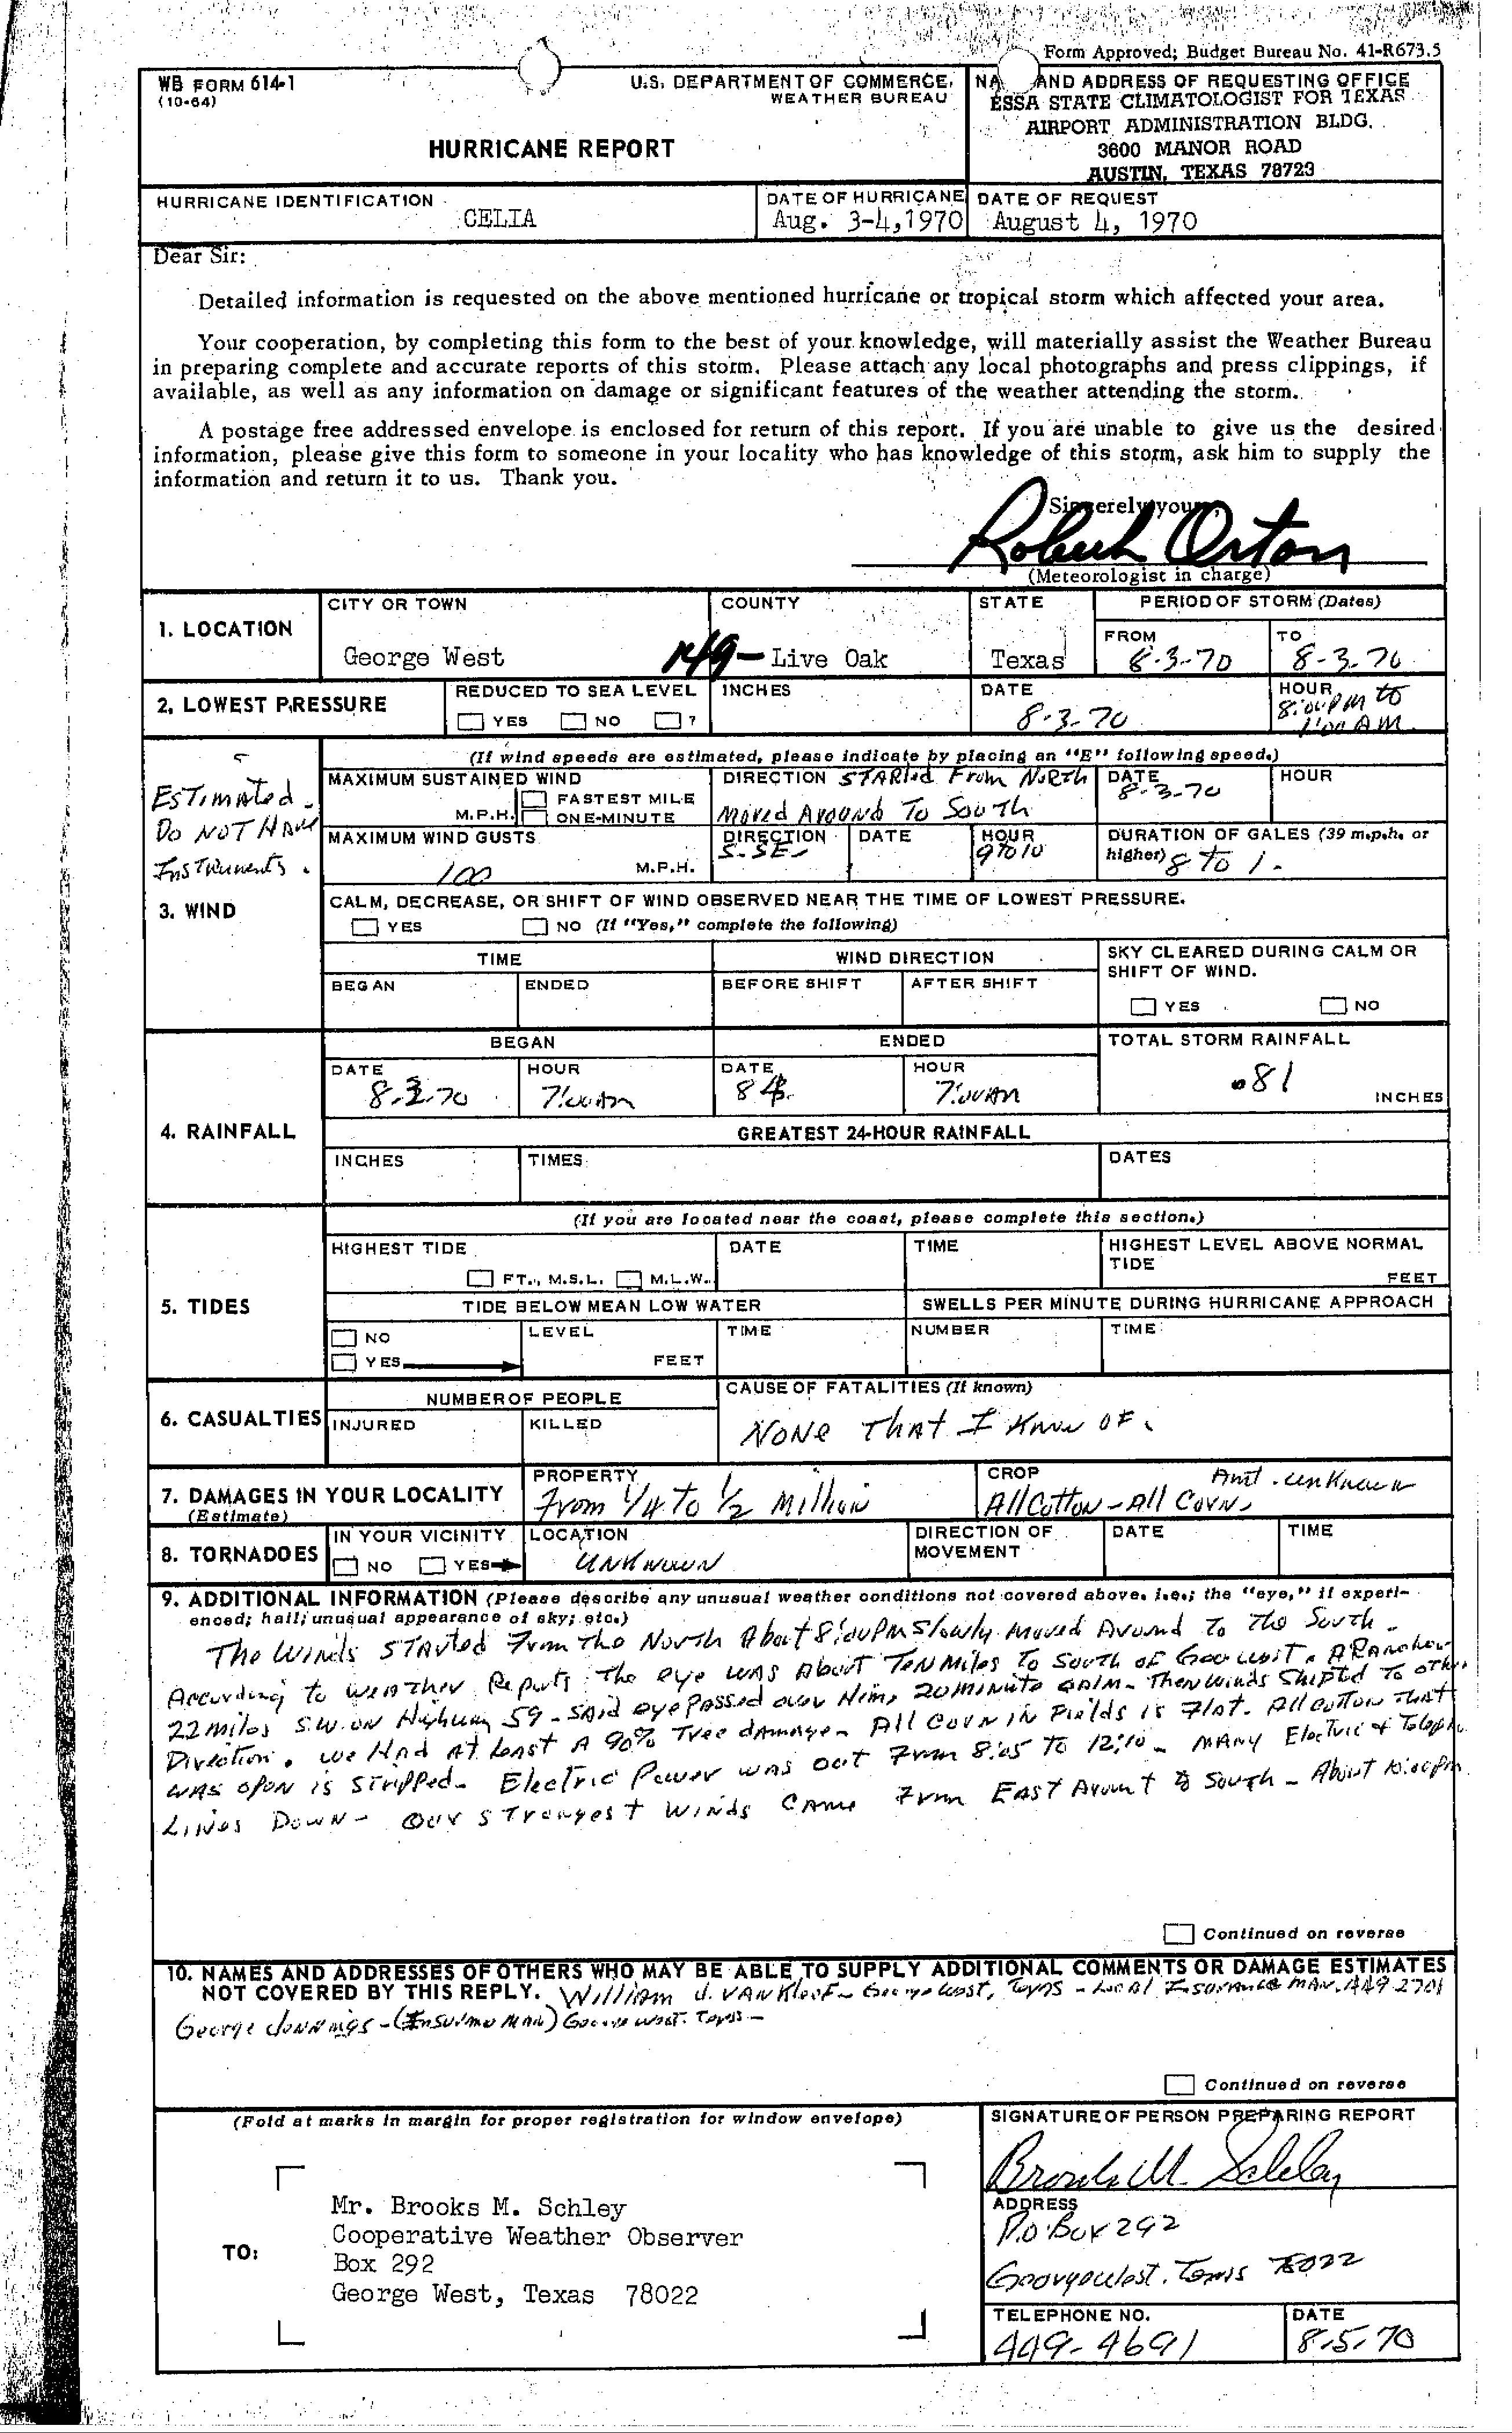 Form Approved; Budget Bureau No. 41-R673.5
WB FORM 614-1
(10-64)
U.S. DEPARTMENT OF COMMERCE,
WEATHER BUREAU
HURRICANE REPORT
AND ADDRESS OF REQUESTING OFFICE
ESSA STATE CLIMATOLOGIST FOR TEXAS
AIRPORT ADMINISTRATION BLDG.
3600 MANOR ROAD
AUSTIN, TEXAS 78723
HURRICANE IDENTIFICATION
CELIA
DATE OF HURRICANE
Aug. 3-4,1970
DATE OF REQUEST
August 4, 1970
Dear Sir:
Detailed information is requested on the above mentioned hurricane or tropical storm which affected your area.
Your cooperation, by completing this form to the best of your knowledge, will materially assist the Weather Bureau
in preparing complete and accurate reports of this storm. Please attach any local photographs and press clippings, if
available, as well as any information on damage or significant features of the weather attending the storm.
A postage free addressed envelope is enclosed for return of this report. If you are unable to give us the desired
information, please give this form to someone in your locality who has knowledge of this storm, ask him to supply the
information and return it to us. Thank you.
Sincerely yours,
Robert Orton
(Meteorologist in charge)
1. LOCATION
CITY OR TOWN
George West
COUNTY
149- Live Oak
STATE
Texas
PERIOD OF STORM (Dates)
FROM
8-3-70
TO
8-3-70
2. LOWEST PRESSURE
REDUCED TO SEA LEVEL
YES NO ?
INCHES
DATE
8-3-70
HOUR
8:00 PM to
1:00 AM
(If wind speeds are estimated, please indicate by placing an "E" following speed.)
Estimated -
Do NOT HAVE
Instruments.
3. WIND
MAXIMUM SUSTAINED WIND
M.P.H.
FASTEST MILE
ONE-MINUTE
DIRECTION Started From North
Moved Around To South
DATE
8-3-70
HOUR
MAXIMUM WIND GUSTS
100 M.P.H.
DIRECTION
S-SE-
DATE
HOUR
9 TO 10
DURATION OF GALES (39 m.p.h. or
higher) 8 To 1-
CALM, DECREASE, OR SHIFT OF WIND OBSERVED NEAR THE TIME OF LOWEST PRESSURE.
YES NO (If "Yes," complete the following)
TIME
WIND DIRECTION
SKY CLEARED DURING CALM OR
SHIFT OF WIND.
BEGAN
ENDED
BEFORE SHIFT
AFTER SHIFT
YES NO
4. RAINFALL
BEGAN
ENDED
TOTAL STORM RAINFALL
DATE
8-3-70
HOUR
7:00 Am
DATE
84
HOUR
7:00 AM
.81
INCHES
GREATEST 24-HOUR RAINFALL
INCHES
TIMES
DATES
5. TIDES
(If you are located near the coast, please complete this section.)
HIGHEST TIDE
FT., M.S.L. M.L.W.
DATE
TIME
HIGHEST LEVEL ABOVE NORMAL
TIDE
FEET
TIDE BELOW MEAN LOW WATER
SWELLS PER MINUTE DURING HURRICANE APPROACH
NO
YES
LEVEL
FEET
TIME
NUMBER
TIME
6. CASUALTIES
NUMBER OF PEOPLE
INJURED
KILLED
CAUSE OF FATALITIES (If known)
None That I Know OF.
7. DAMAGES IN YOUR LOCALITY
(Estimate)
PROPERTY
From 1/4 To 1/2 Million
CROP
Amt. unknown
All Cotton - All Corn -
8. TORNADOES
IN YOUR VICINITY
NO YES
LOCATION
UNKNOWN
DIRECTION OF
MOVEMENT
DATE
TIME
9. ADDITIONAL INFORMATION (Please describe any unusual weather conditions not covered above, i.e.; the "eye," if experi-
enced; hail; unusual appearance of sky; etc.)
The Winds Started From The North About 8:00 PM Slowly Moved Around To The South -
According to Weather Reports The eye was About Ten Miles To South of Geo West. A Rancher
22 miles S.W. on Highway 59 - Said eye Passed over Him, 20 minute Calm - Then Winds Shifted To other
Direction. We Had At Least A 90% Tree damage - All Corn in Fields is Flat. All Cotton That
was open is stripped - Electric Power was out From 8:05 To 12:10 - Many Electric & Telephone
Lines Down - Our Strongest Winds Came From East Around to South - About 10:00 pm
Continued on reverse
10. NAMES AND ADDRESSES OF OTHERS WHO MAY BE ABLE TO SUPPLY ADDITIONAL COMMENTS OR DAMAGE ESTIMATES
NOT COVERED BY THIS REPLY. William J. Van Kleef - George West, Texas - Local Insurance Man. 449-2701
George Jennings - (Insurance Man) George West. Texas -
Continued on reverse
(Fold at marks in margin for proper registration for window envelope)
TO:
Mr. Brooks M. Schley
Cooperative Weather Observer
Box 292
George West, Texas 78022
SIGNATURE OF PERSON PREPARING REPORT
Brooks M. Schley
ADDRESS
P.O. Box 292
George West, Texas 78022
TELEPHONE NO.
449-4691
DATE
8-5-70